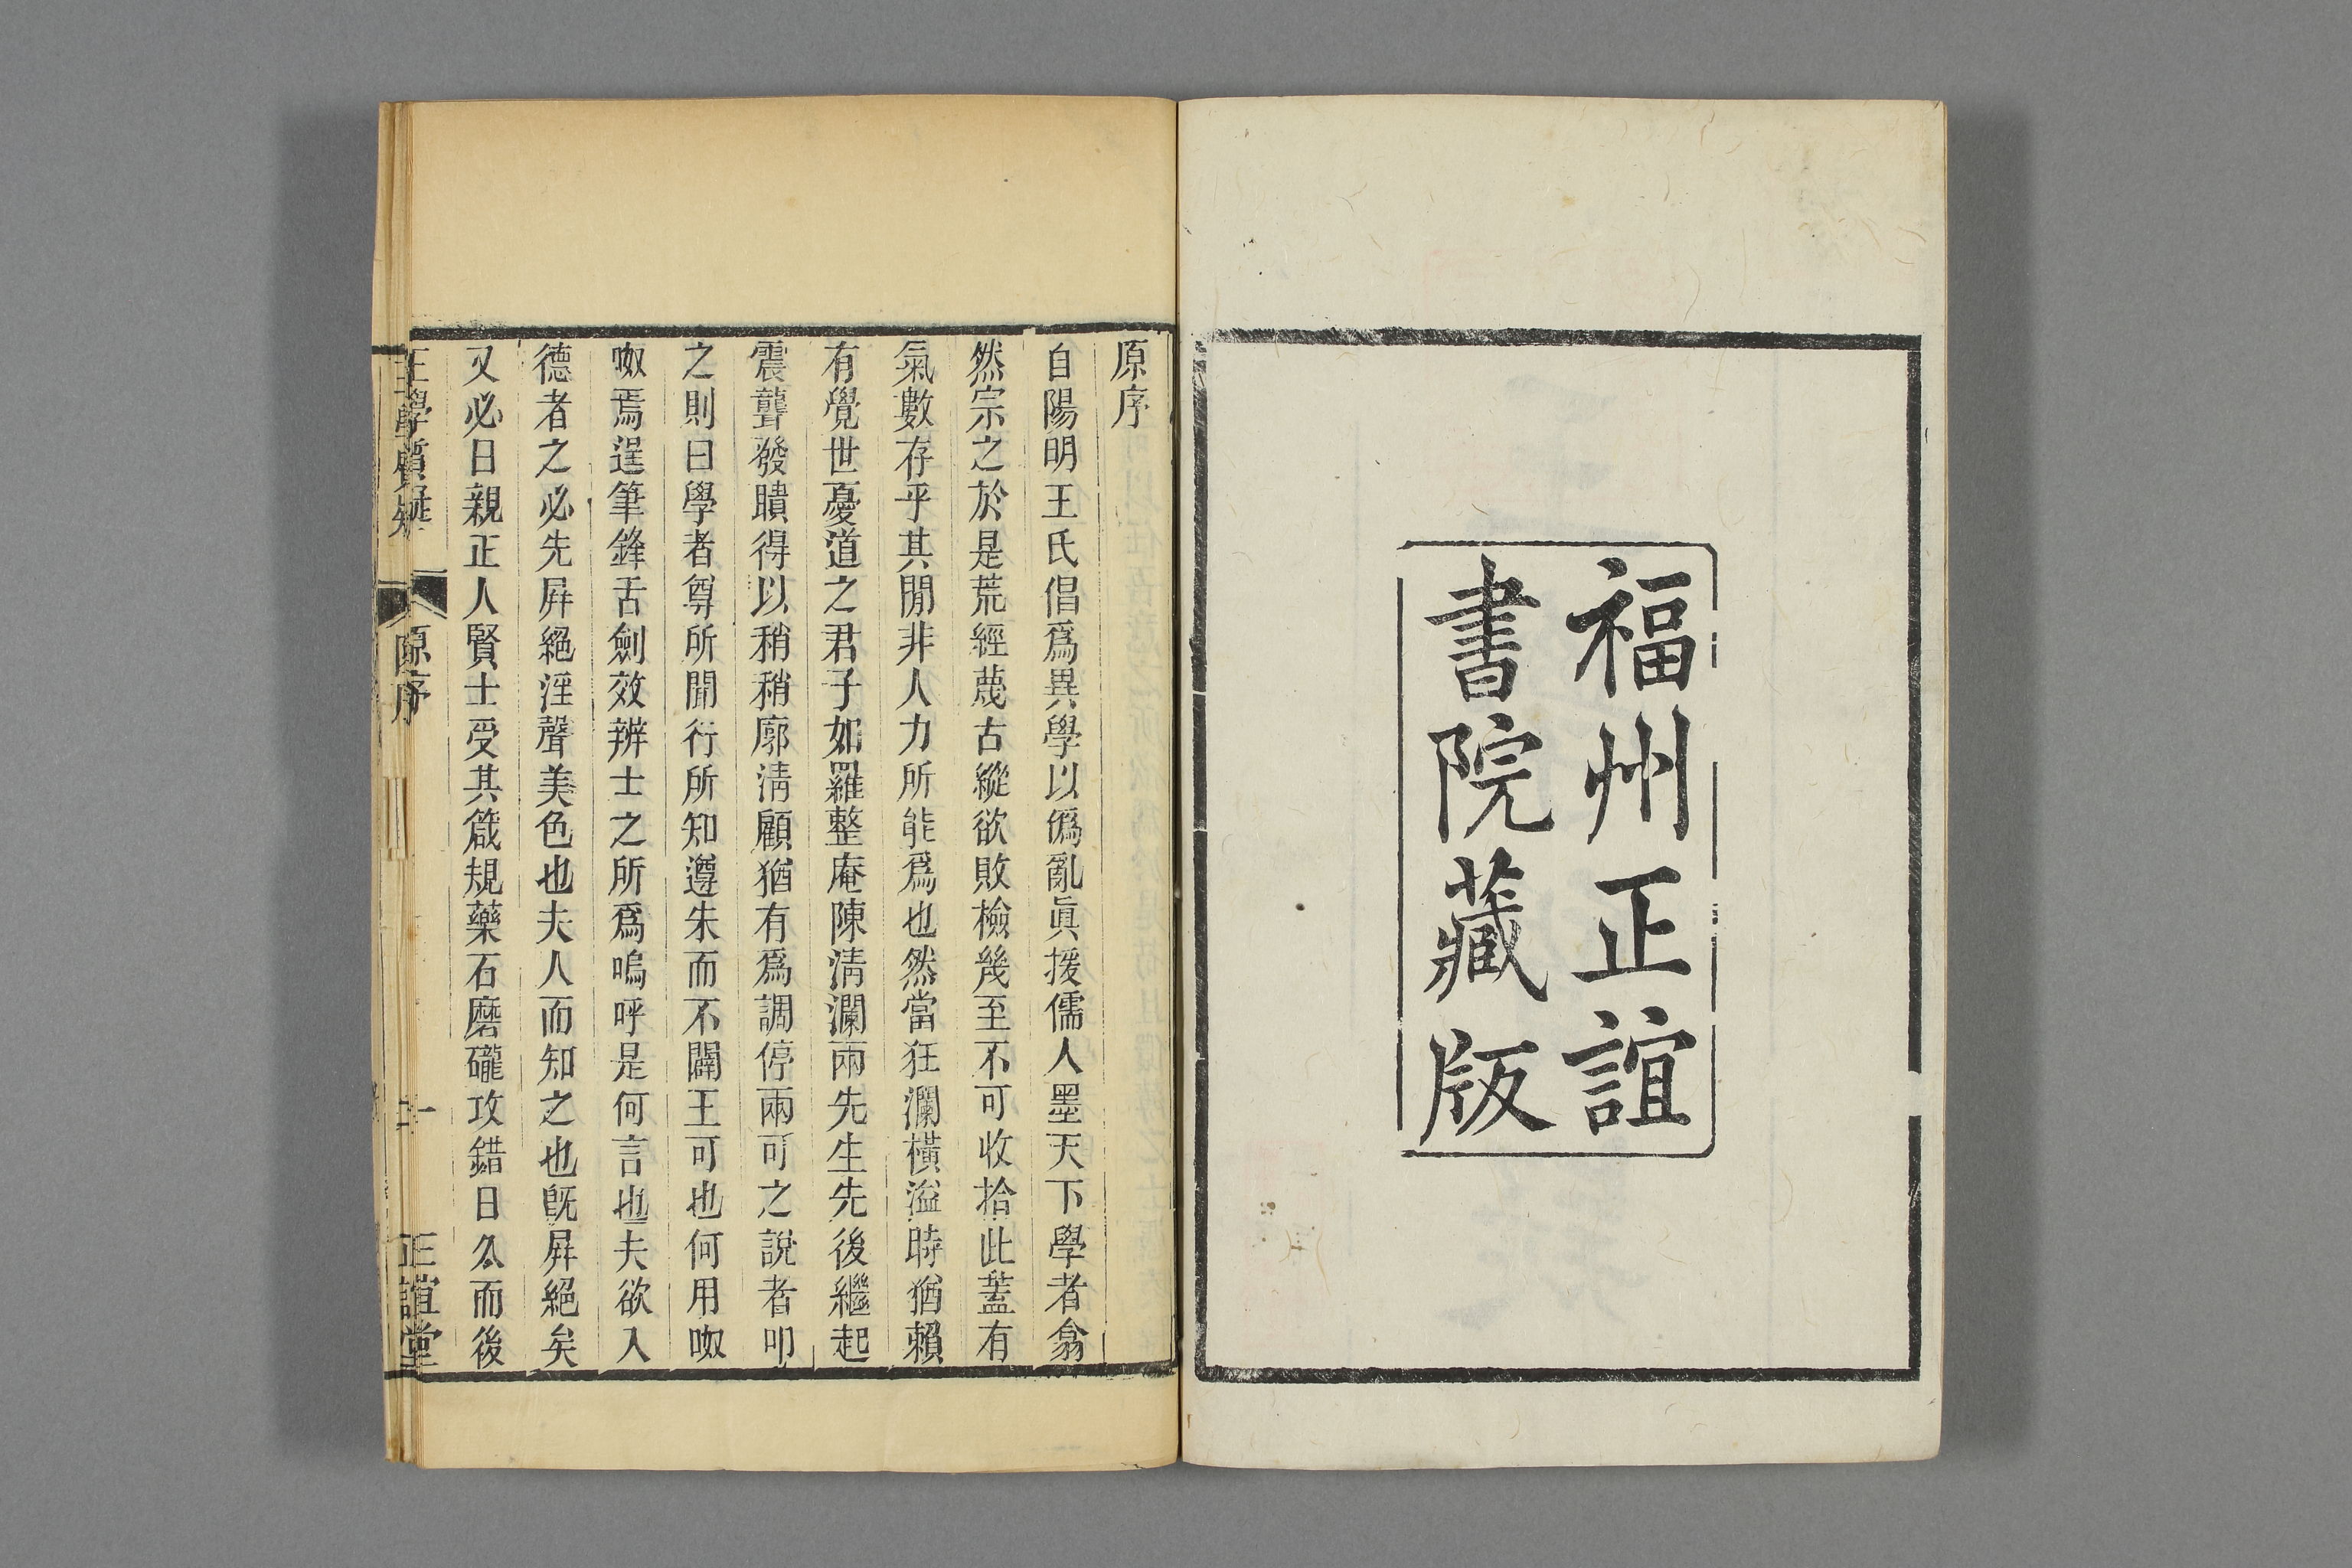 福州正誼
書院藏版
原序
自陽明王氏倡爲異學以僞亂眞援儒人墨天下學者翕
然宗之於是荒經蔑古縱欲敗檢幾至不可收拾此蓋有
氣數存乎其閒非人力所能爲也然當狂瀾橫溢時猶賴
有覺世憂道之君子如羅整庵陳淸瀾兩先生先後繼起
震聾發聵得以稍稍廓淸顧猶有爲調停兩可之說者叩
之則曰學者尊所聞行所知遵朱而不闢王可也何用呶
呶焉逞筆鋒舌劍效辨士之所爲嗚呼是何言也夫欲入
德者之必先屛絕淫聲美色也夫人而知之也旣屛絕矣
又必日親正人賢士受其箴規藥石磨礲攻錯日久而後
王學質疑
原序
一
正誼堂